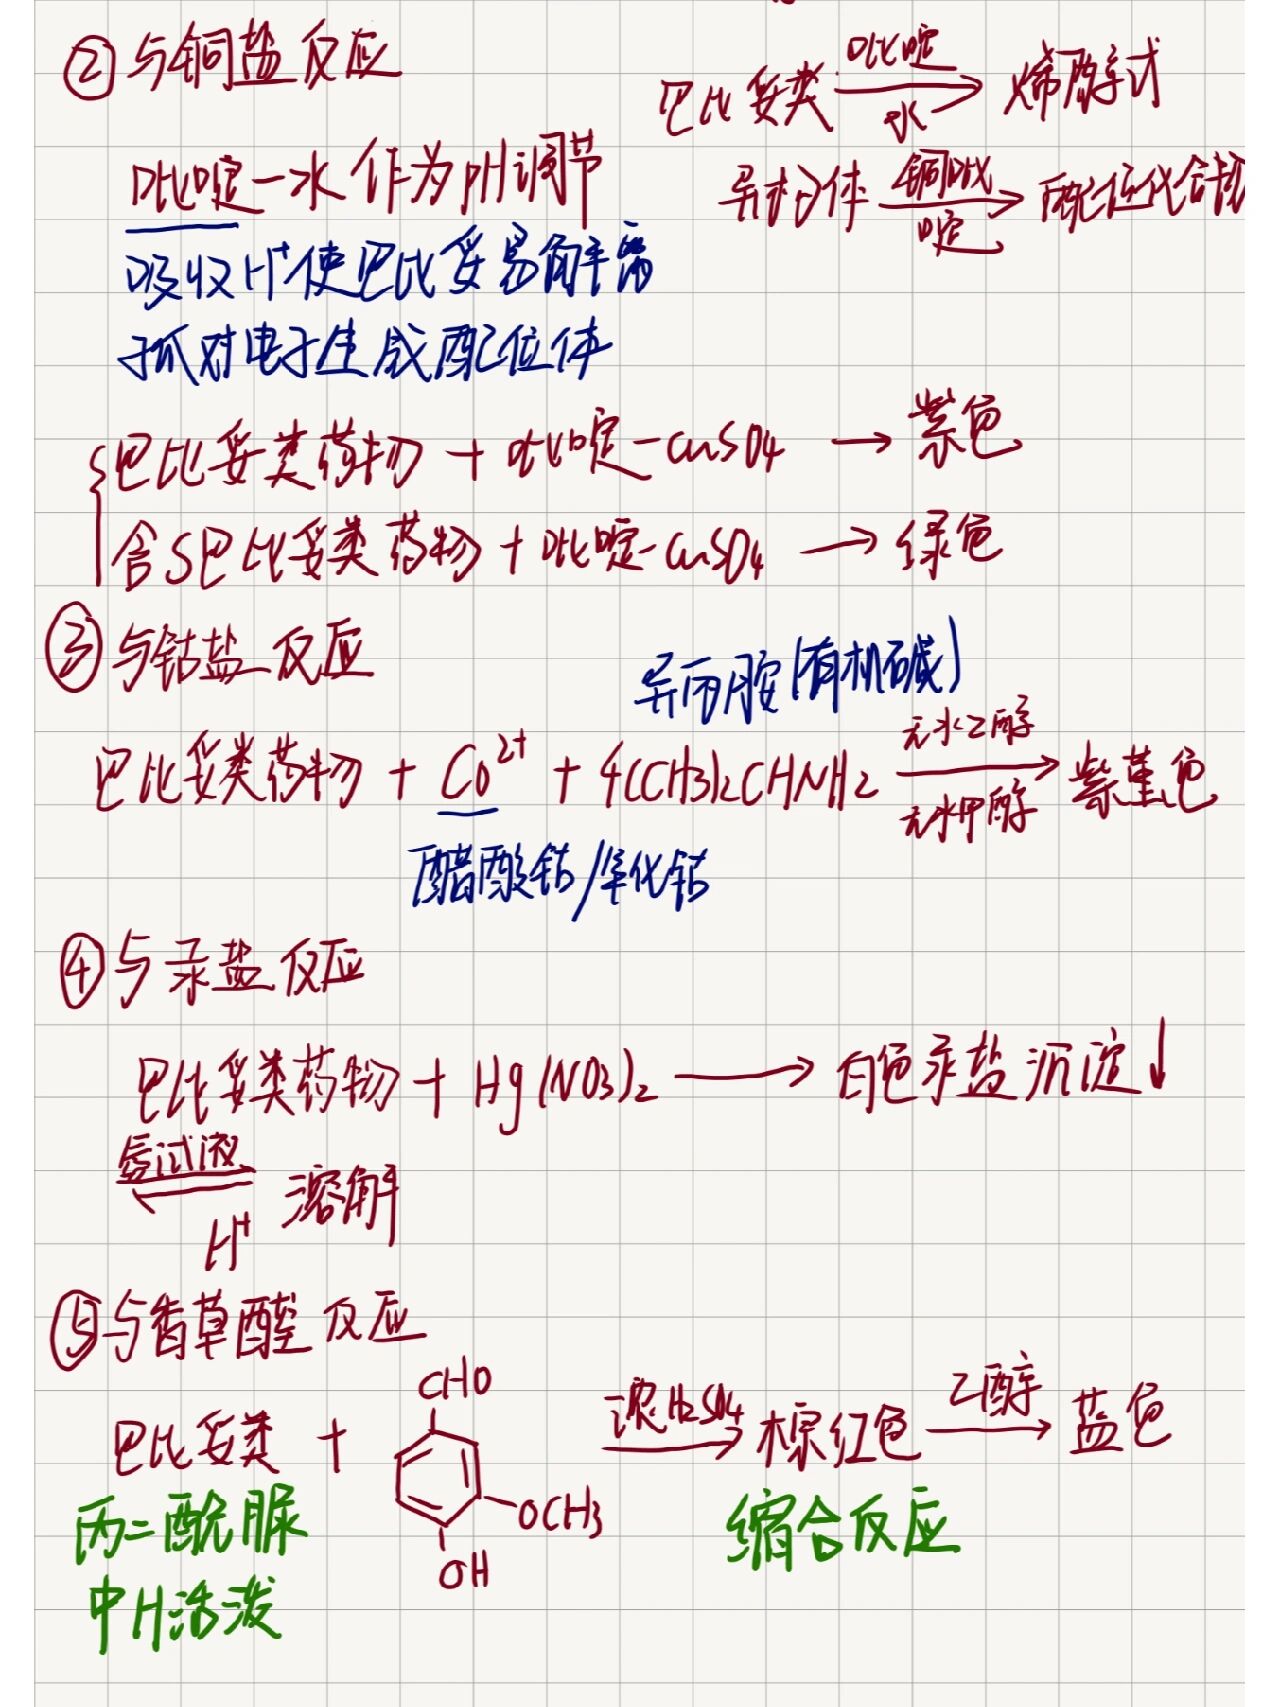 ② 与铜盐反应
巴比妥类 吡啶 水 → 烯醇式
异构体 铜吡啶 → 配位化合物
吡啶-水作为pH调节
吸收H⁺使巴比妥易解离
孤对电子生成配位体
巴比妥类药物 + 吡啶-CuSO4 → 紫色
含S巴比妥类药物 + 吡啶-CuSO4 → 绿色
③ 与钴盐反应
异丙胺(有机碱)
巴比妥类药物 + Co²⁺ + 4(CH3)2CHNH2 无水乙醇 无水甲醇 → 紫堇色
醋酸钴/氯化钴
④ 与汞盐反应
巴比妥类药物 + Hg(NO3)2 → 白色汞盐沉淀↓
氨试液 H⁺ 溶解
⑤ 与香草醛反应
CHO
巴比妥类 + 浓H2SO4 → 棕红色 乙醇 → 蓝色
OCH3
OH
丙二酰脲
中H活泼
缩合反应